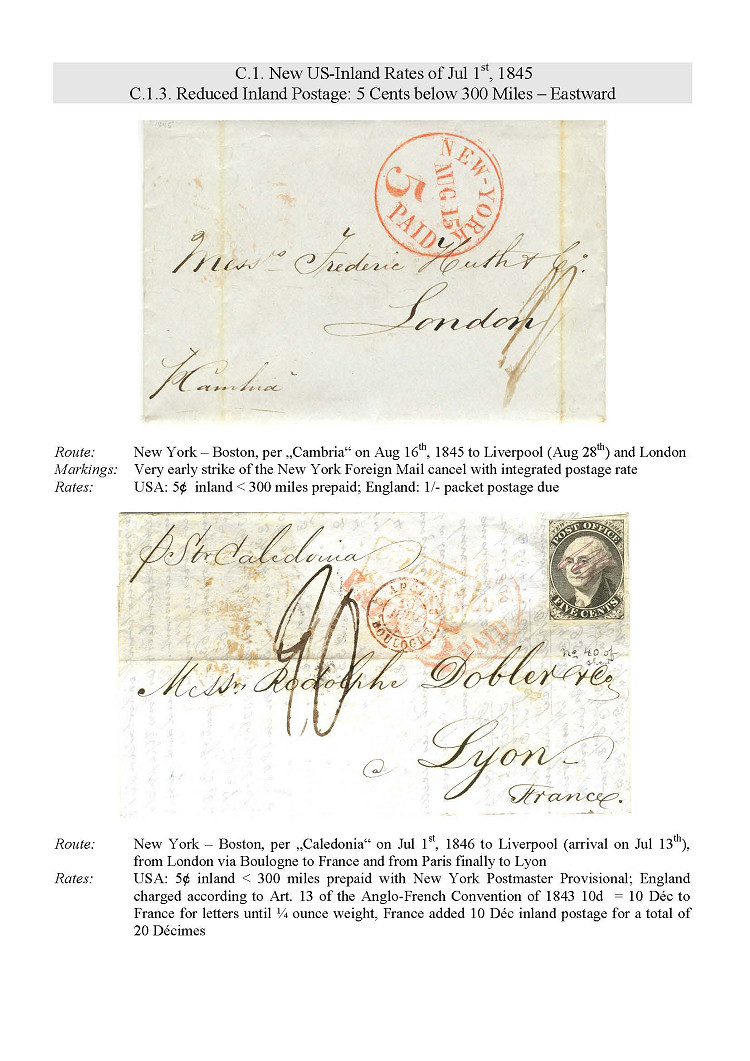 C.1. New US-Inland Rates of Jul 1st, 1845
C.1.3. Reduced Inland Postage: 5 Cents below 300 Miles – Eastward
NEW-YORK
AUG 15
5
PAID
Messrs Frederic Huth & Co.
London
p Cambria
Route: New York – Boston, per „Cambria“ on Aug 16th, 1845 to Liverpool (Aug 28th) and London
Markings: Very early strike of the New York Foreign Mail cancel with integrated postage rate
Rates: USA: 5¢ inland < 300 miles prepaid; England: 1/- packet postage due
p Str Caledonia
POST OFFICE
FIVE CENTS
BOULOGNE
PAID
No 40 of
Messrs Rodolphe Dobler & Co
a
Lyon
France.
Route: New York – Boston, per „Caledonia“ on Jul 1st, 1846 to Liverpool (arrival on Jul 13th),
from London via Boulogne to France and from Paris finally to Lyon
Rates: USA: 5¢ inland < 300 miles prepaid with New York Postmaster Provisional; England
charged according to Art. 13 of the Anglo-French Convention of 1843 10d = 10 Déc to
France for letters until ¼ ounce weight, France added 10 Déc inland postage for a total of
20 Décimes